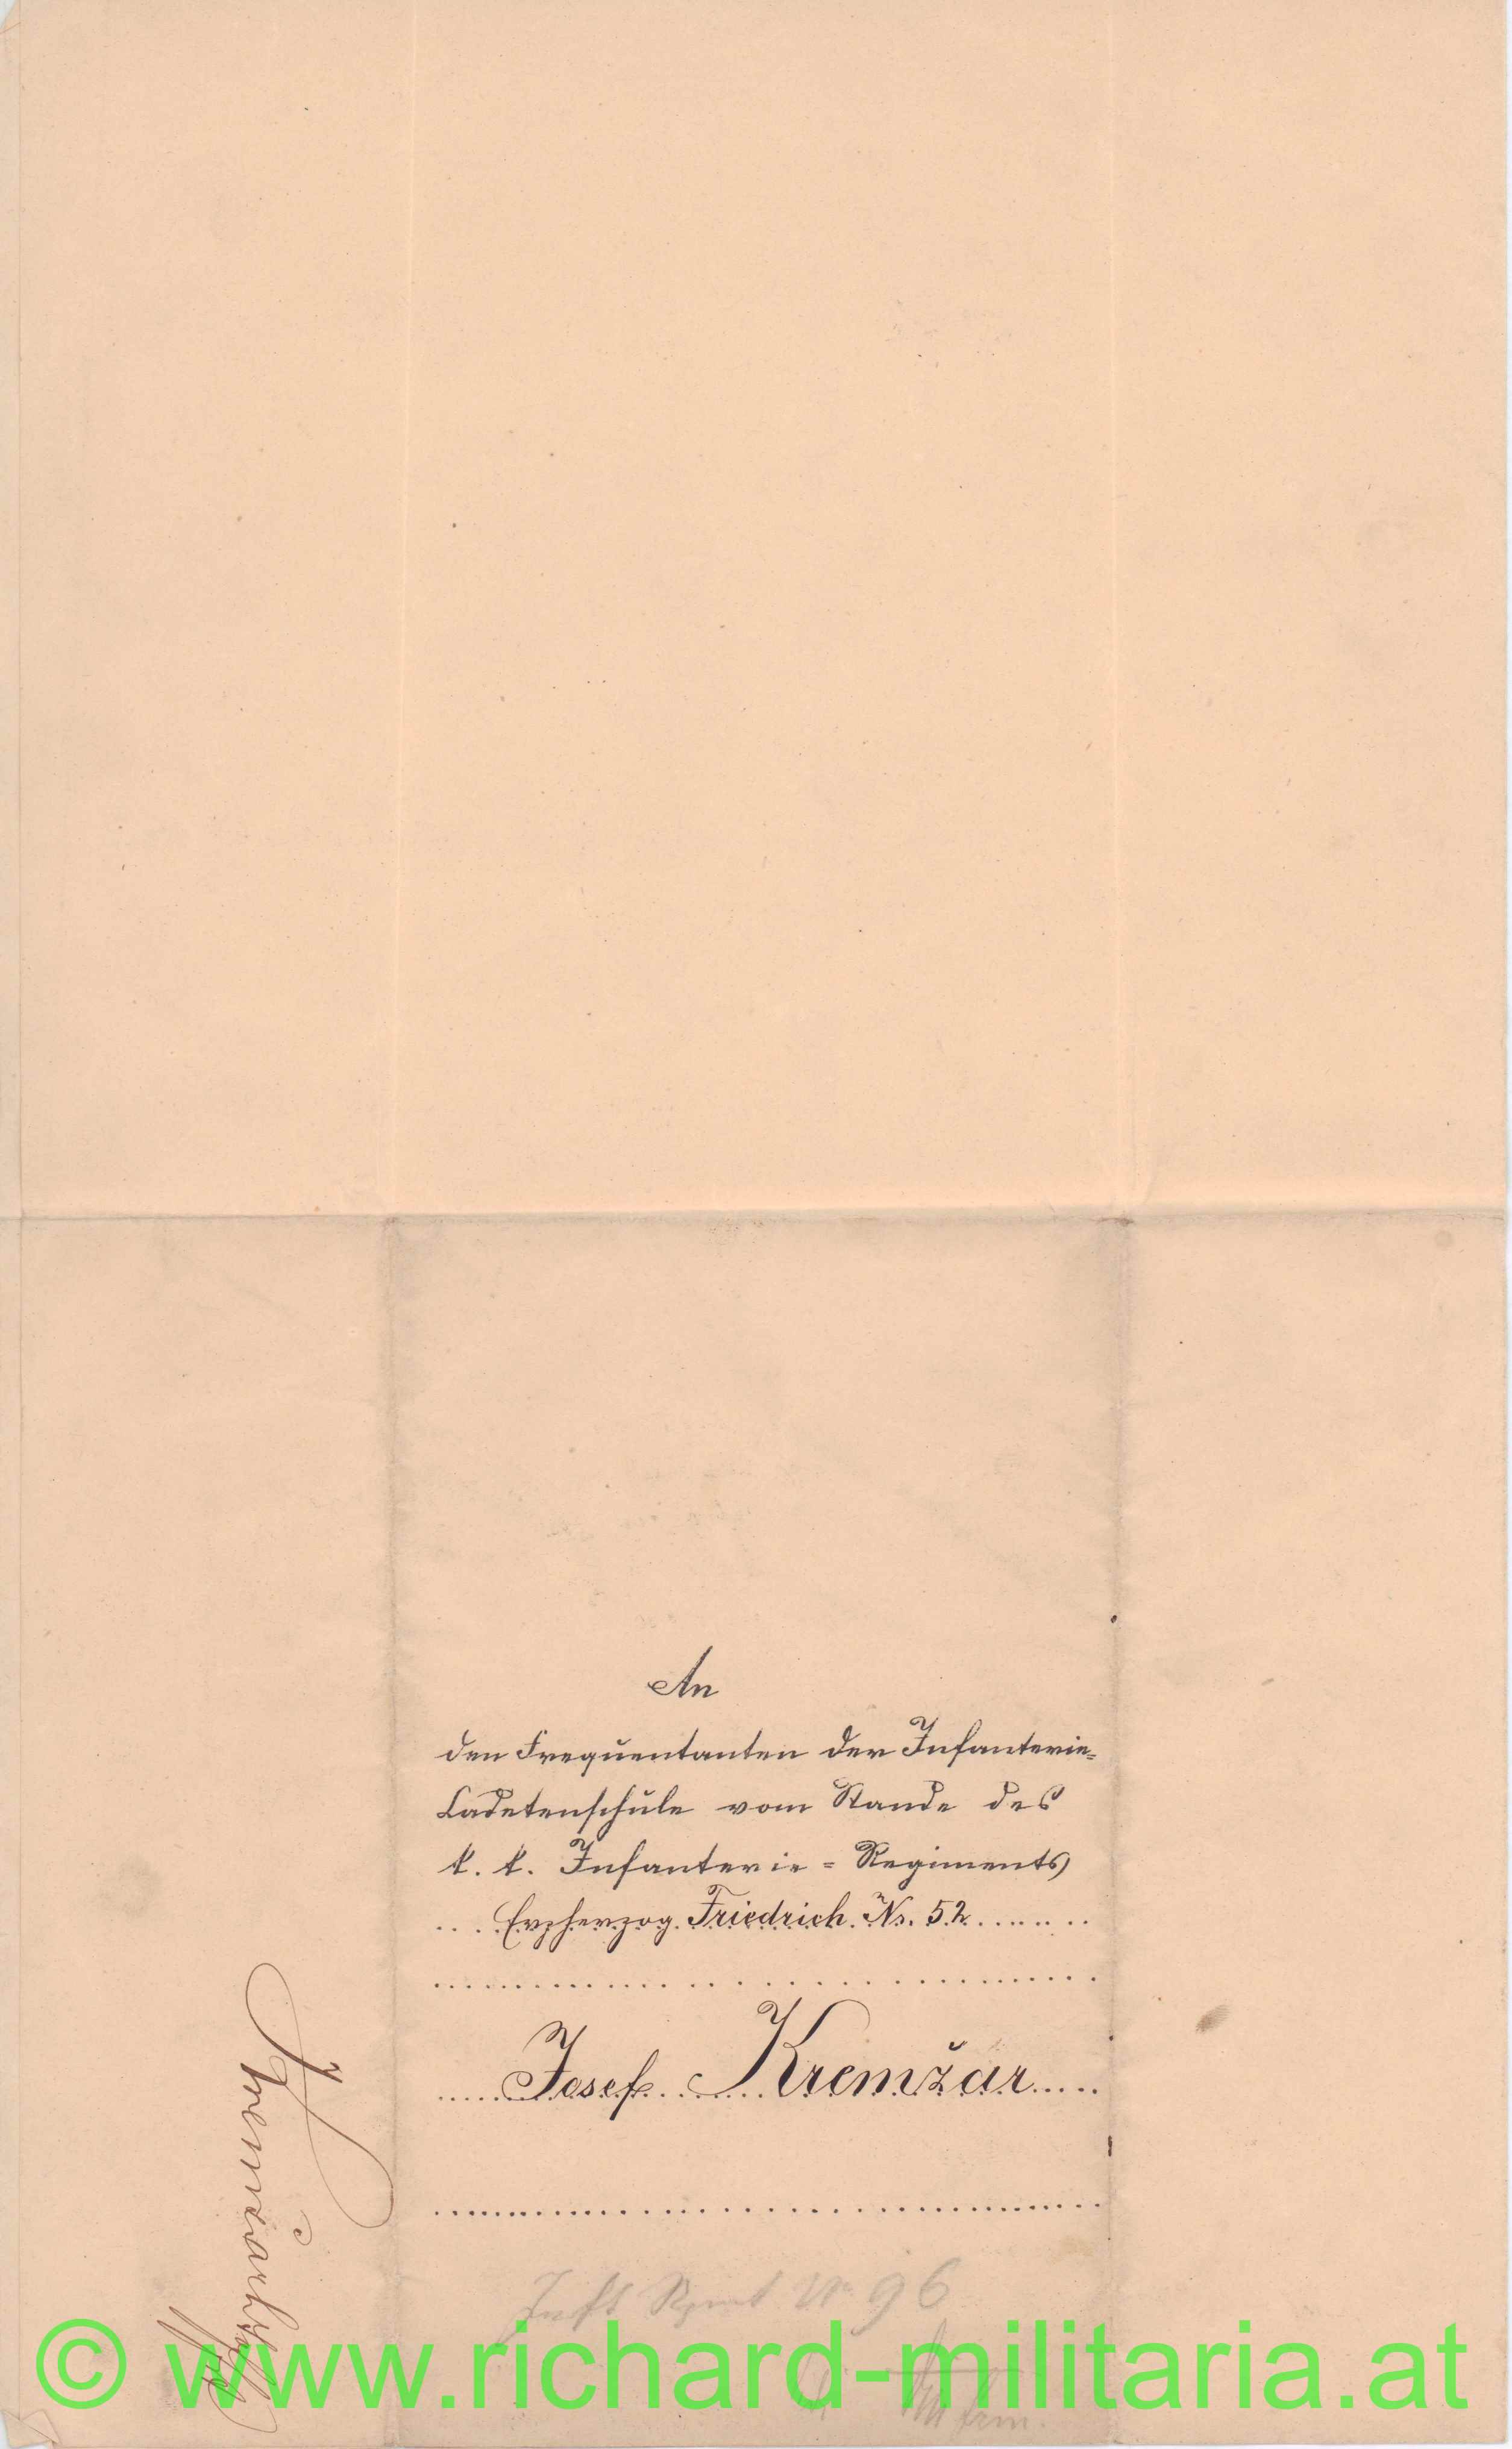 An
den Frequentanten der Infanterie=
Cadetenschule vom Stande des
k. k. Infanterie = Regiments
... Erzherzog Friedrich Nr. 52 ........
Josef Kremžar
Inft Rgmt Nr 96
© www.richard-militaria.at